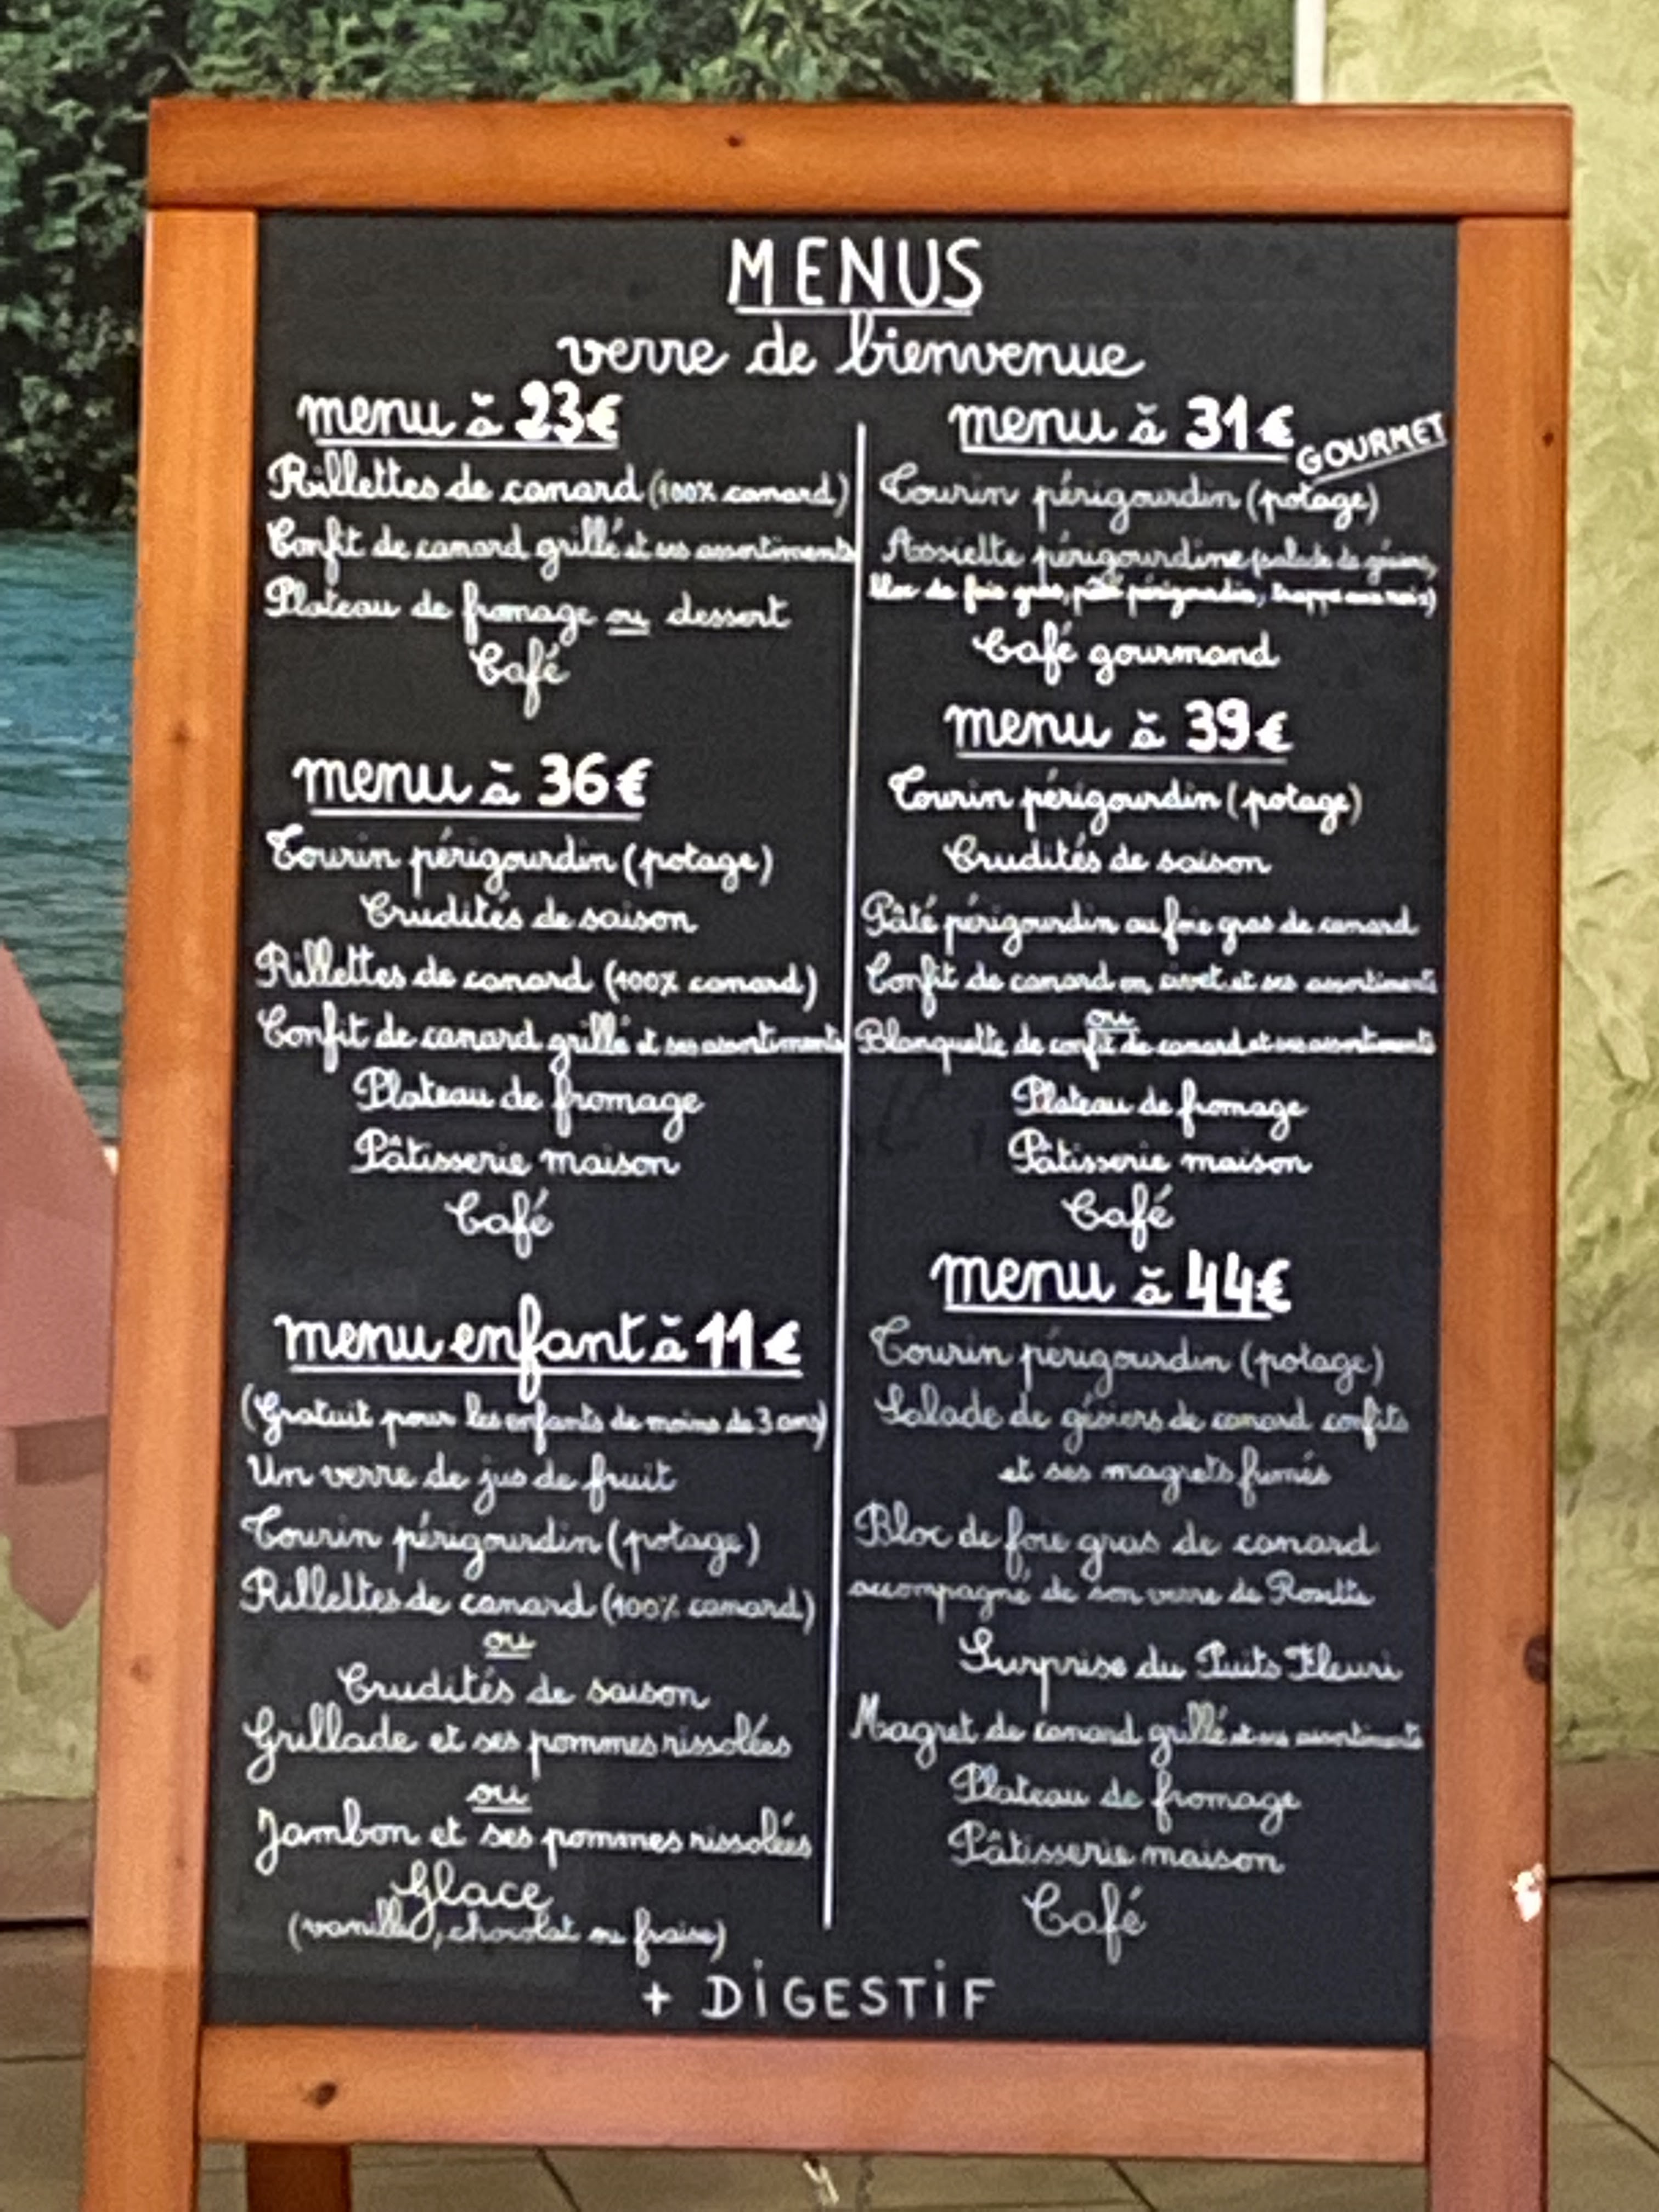 MENUS
verre de bienvenue
menu à 23€
Rillettes de canard (100% canard)
Confit de canard grillé et ses assortiments
Plateau de fromage ou dessert
Café
menu à 36€
Tourin périgourdin (potage)
Crudités de saison
Rillettes de canard (100% canard)
Confit de canard grillé et ses assortiments
Plateau de fromage
Pâtisserie maison
Café
menu enfant à 11€
(Gratuit pour les enfants de moins de 3 ans)
Un verre de jus de fruit
Tourin périgourdin (potage)
Rillettes de canard (100% canard)
ou
Crudités de saison
Grillade et ses pommes rissolées
ou
Jambon et ses pommes rissolées
Glace
(vanille, chocolat ou fraise)
menu à 31€ GOURMET
Tourin périgourdin (potage)
Assiette périgourdine (salade de gésiers,
bloc de foie gras, pâté périgourdin, trappe aux noix)
Café gourmand
menu à 39€
Tourin périgourdin (potage)
Crudités de saison
Pâté périgourdin au foie gras de canard
Confit de canard en civet et ses assortiments
ou
Blanquette de confit de canard et ses assortiments
Plateau de fromage
Pâtisserie maison
Café
menu à 44€
Tourin périgourdin (potage)
Salade de gésiers de canard confits
et ses magrets fumés
Bloc de foie gras de canard
accompagné de son verre de Rosette
Surprise du Puits Fleuri
Magret de canard grillé et ses assortiments
Plateau de fromage
Pâtisserie maison
Café
+ DIGESTIF